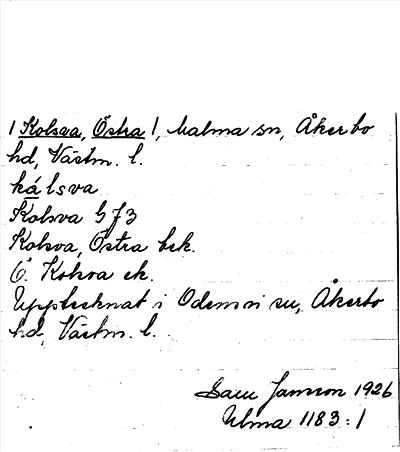 / Kolsva, Östra /, Malma sn, Åkerbo
hd, Västm. l.
kålsva
Kolsva G J3
Kolsva, Östra bek.
Ö. Kolsva ek.
Upptecknat i Odensvi sn, Åkerbo
hd, Västm. l.
Sam Jansson 1926
Ulma 1183:1